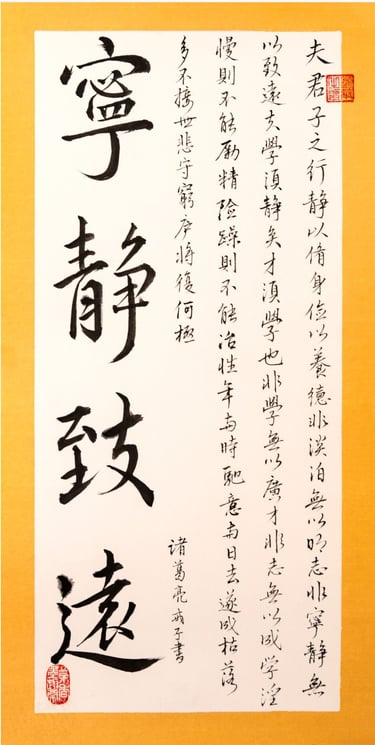 夫君子之行静以脩身俭以養德非淡泊無以明志非寧静無
以致遠夫學須静矣才須學也非學無以廣才非志無以成学淫
慢則不能励精险躁則不能治性年与時馳意与日去遂成枯落
多不接世悲守窮庐將復何極
诸葛亮诫子書
寧静致遠